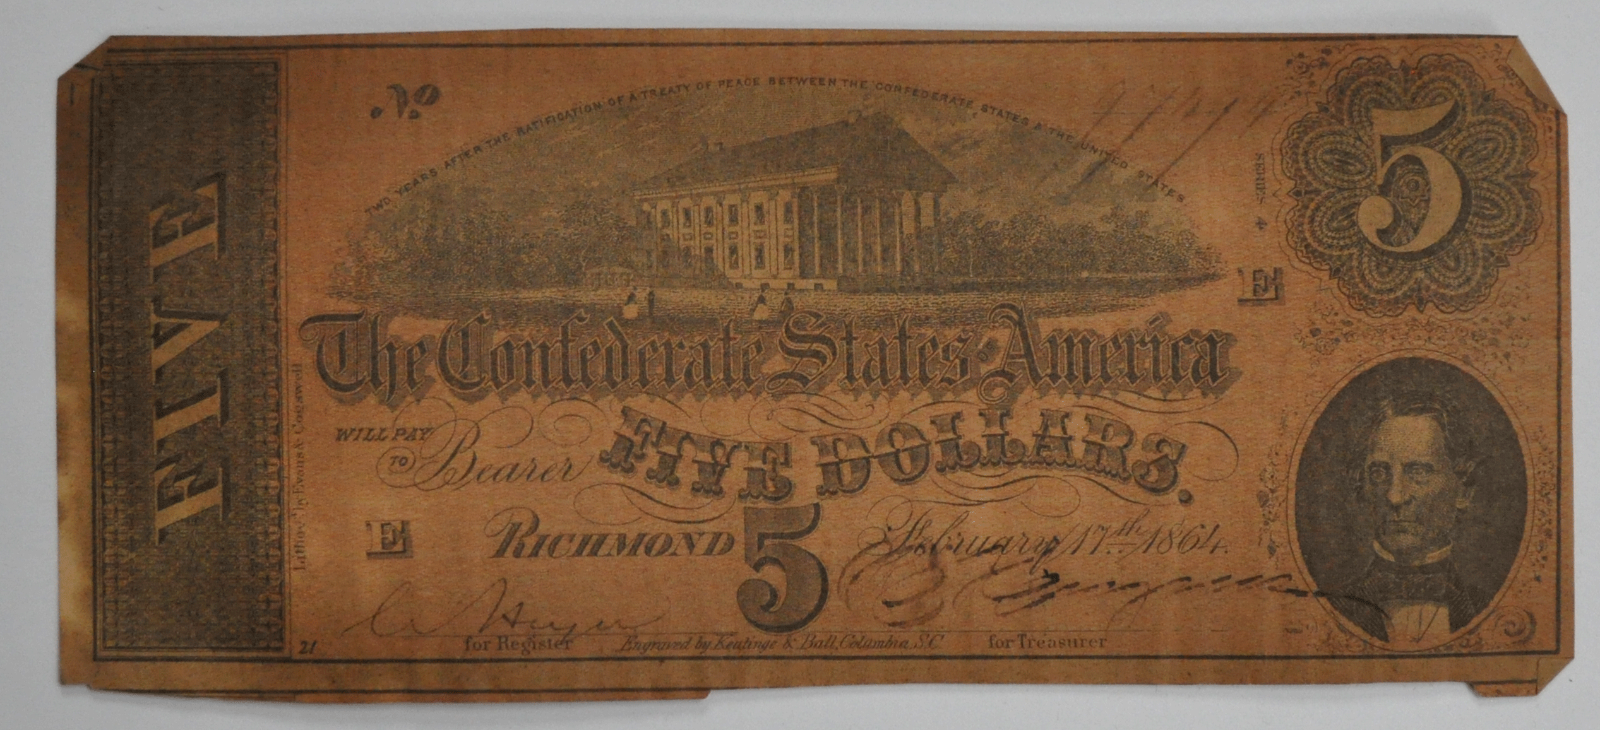 FIVE
No
TWO YEARS AFTER THE RATIFICATION OF A TREATY OF PEACE BETWEEN THE CONFEDERATE STATES & THE UNITED STATES
SERIES 4
5
E
The Confederate States of America
WILL PAY
TO Bearer
FIVE DOLLARS.
E
RICHMOND
5
February 17th 1864.
for Register
Engraved by Keatinge & Ball, Columbia, S.C.
for Treasurer
21
Litho'd by Evans & Cogswell